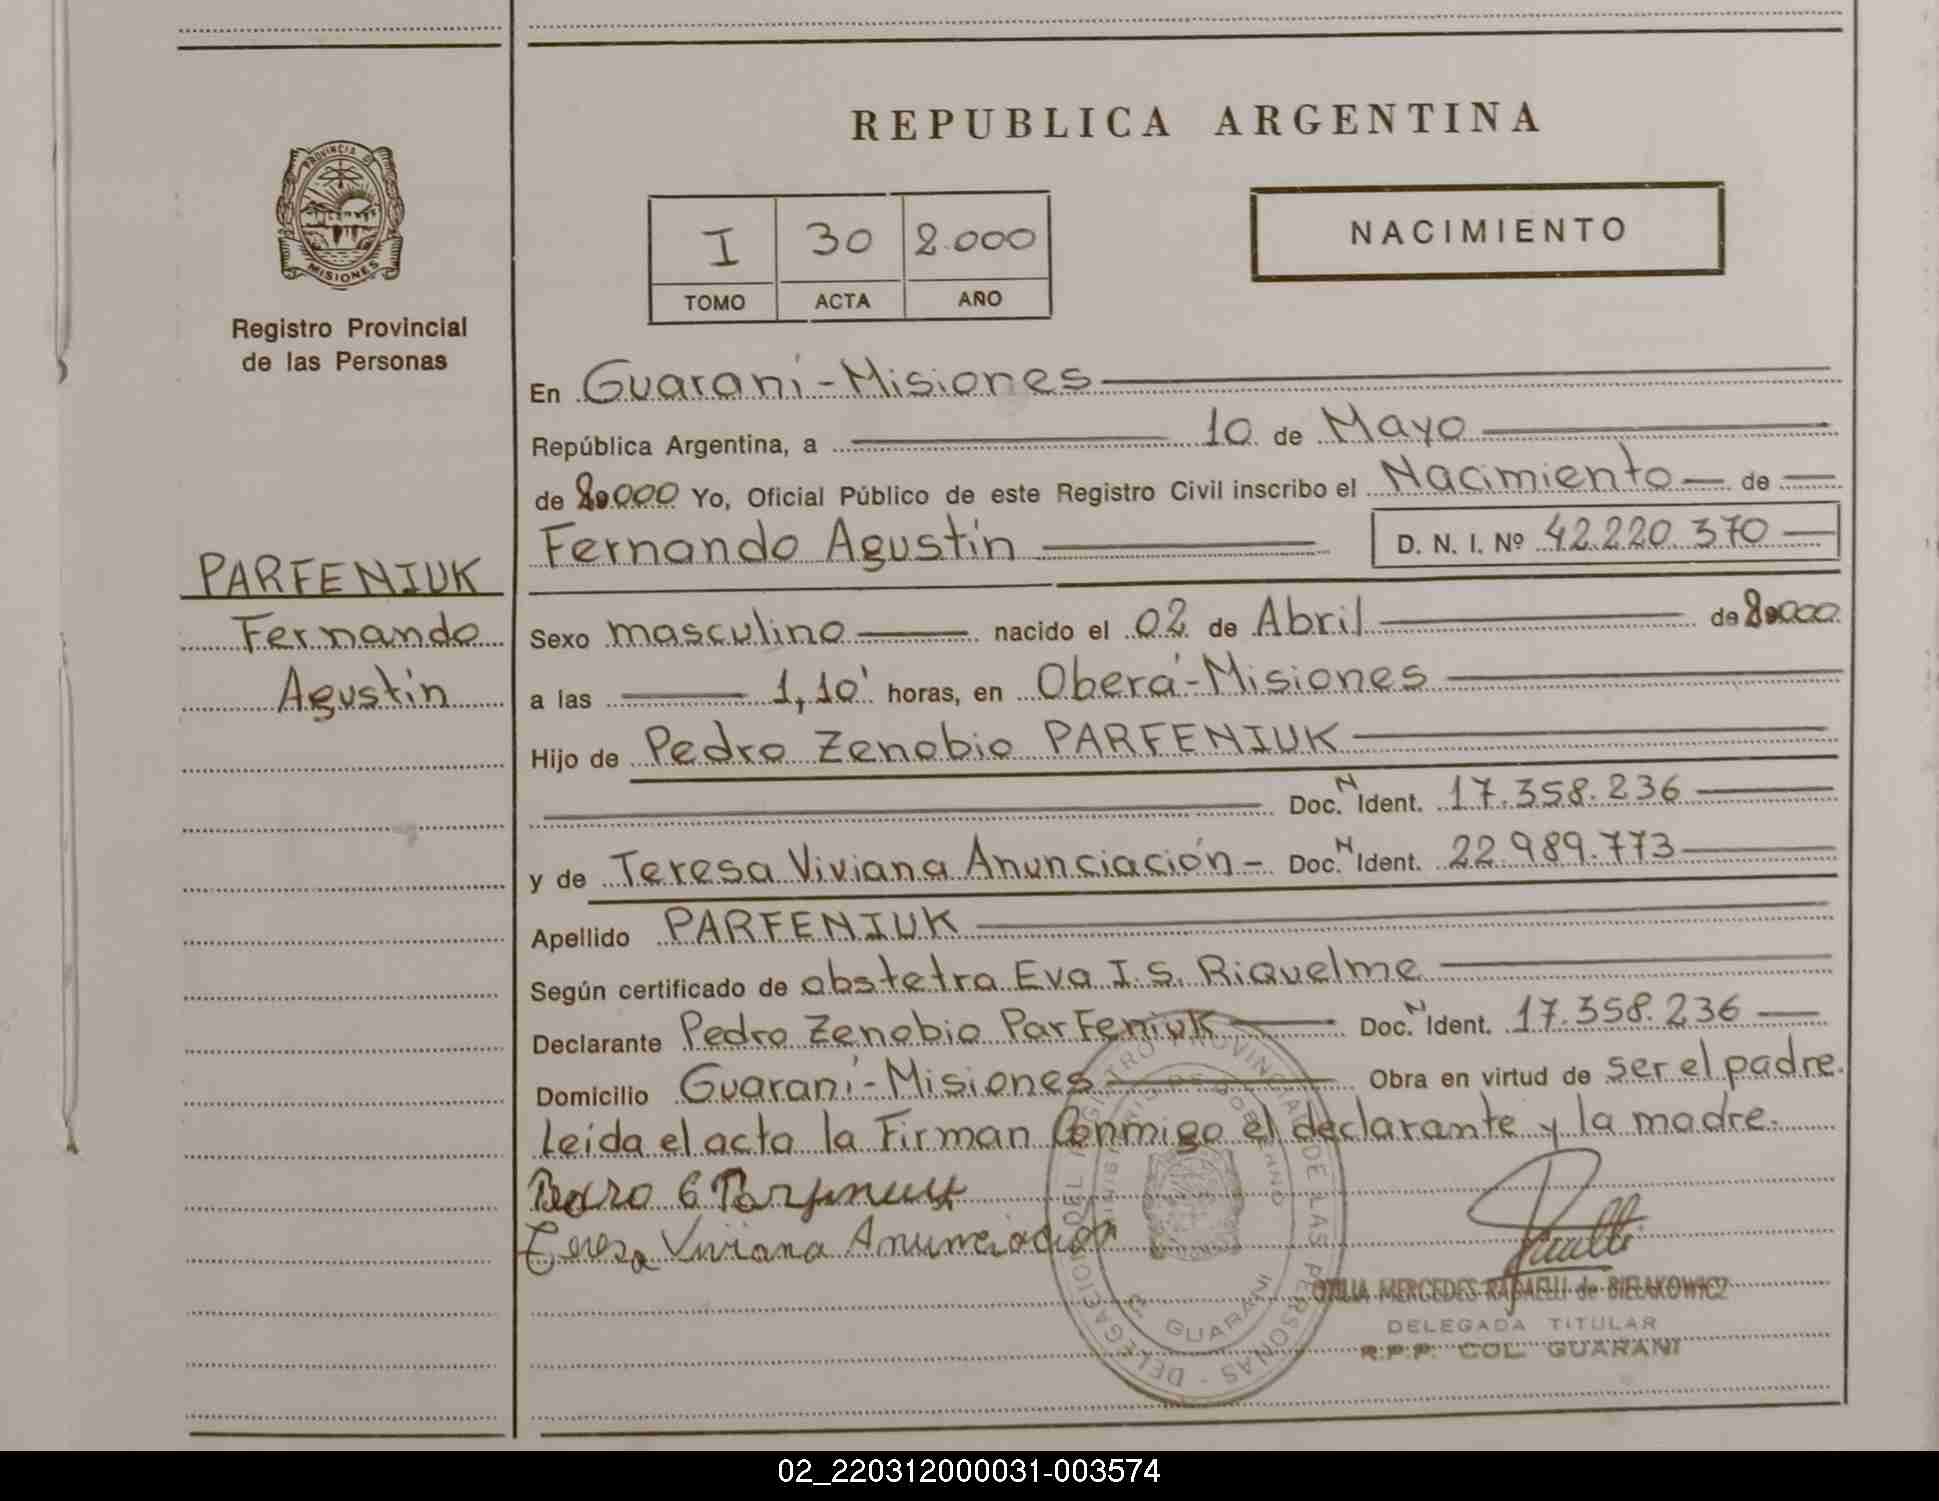 REPUBLICA ARGENTINA
PROVINCIA DE
MISIONES
Registro Provincial
de las Personas
I 30 2.000
TOMO ACTA AÑO
NACIMIENTO
PARFENIUK
Fernando
Agustín
En Guaraní-Misiones
República Argentina, a 10 de Mayo
de 2.000 Yo, Oficial Público de este Registro Civil inscribo el Nacimiento de
Fernando Agustín D. N. I. Nº 42.220.370
Sexo masculino nacido el 02 de Abril de 2.000
a las 1,10' horas, en Oberá-Misiones
Hijo de Pedro Zenobio PARFENIUK
Doc. N Ident. 17.358.236
y de Teresa Viviana Anunciación - Doc. N Ident. 22.989.773
Apellido PARFENIUK
Según certificado de obstetra Eva I. S. Riquelme
Declarante Pedro Zenobio Parfeniuk Doc. N Ident. 17.358.236
Domicilio Guaraní-Misiones Obra en virtud de ser el padre.
Leída el acta la Firman Conmigo el declarante y la madre.
Teresa Viviana Anunciación
REGISTRO PROVINCIAL DE LAS PERSONAS - DELEGACION DEL
MINISTERIO DE GOBIERNO
GUARANI
OTILIA MERCEDES RAFAELLI de BIELAKOWICZ
DELEGADA TITULAR
R.P.P. COL. GUARANI
02_220312000031-003574